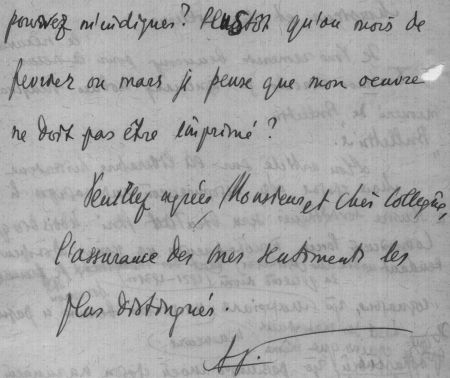 pouvez m'indiquer? Plustôt qu'au mois de
fevrier ou mars je pense que mon oeuvre
ne doit pas être imprimé?
Veuillez agréer, Monsieur et cher Collègue,
l'assurance des mes sentiments les
plus distingués